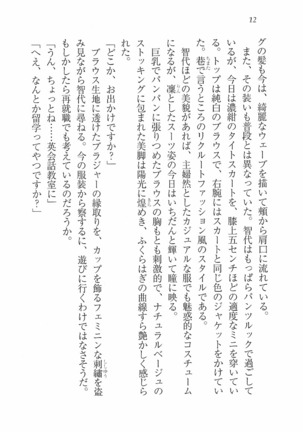 12
グの髪も今は、綺麗なウェーブを描いて頬から肩口に流れている。
また、その装いも普段とは異なっていた。智代はもっぱらパンツルックで過ごして
いるが、今日は濃紺のタイトスカートを、膝上五センチほどの適度なミニで穿いてい
る。トップは純白のブラウスで、右腕にはスカートと同じ色のジャケットをかけてい
た。巷で言うところのリクルートファッション風のスタイルである。
智代ほどの美貌があれば、主婦然としたカジュアルな服でも魅惑的なコスチューム
になるが、凛としたスーツ姿の今日はいちだんと輝いて瞳に映る。
巨乳でパンパンに張りつめたブラウスの胸もとも刺激的で、ナチュラルベージュの
ストッキングに包まれた美脚は陽光に煌めき、ふくらはぎの曲線すら艶かしく感じら
れた。
「どこか、お出かけですか?」
ブラウス生地に透けたブラジャーの縁取りを、カップを飾るフェミニンな刺繍を盗
み見ながら智代に尋ねる。今の服装から察するに、遊びに行くわけではなさそうだ。
もしかしたら再就職でも考えているのだろうか。
「うん、ちょっとね……英会話教室に」
「へえ、なんとか留学ってやつですか?」